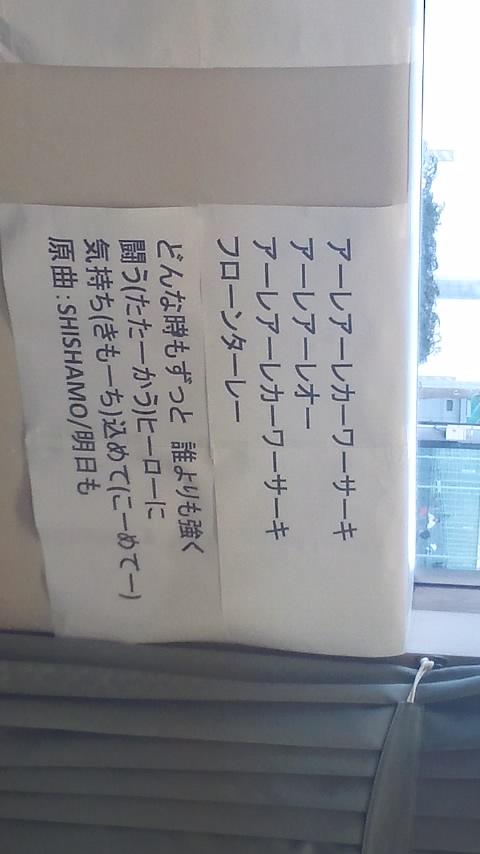 アーレアーレカーワーサーキ
アーレアーレオー
アーレアーレカーワーサーキ
フローンターレー
どんな時もずっと 誰よりも強く
闘う(たたーかう)ヒーローに
気持ち(きもーち)込めて(こーめてー)
原曲:SHISHAMO/明日も